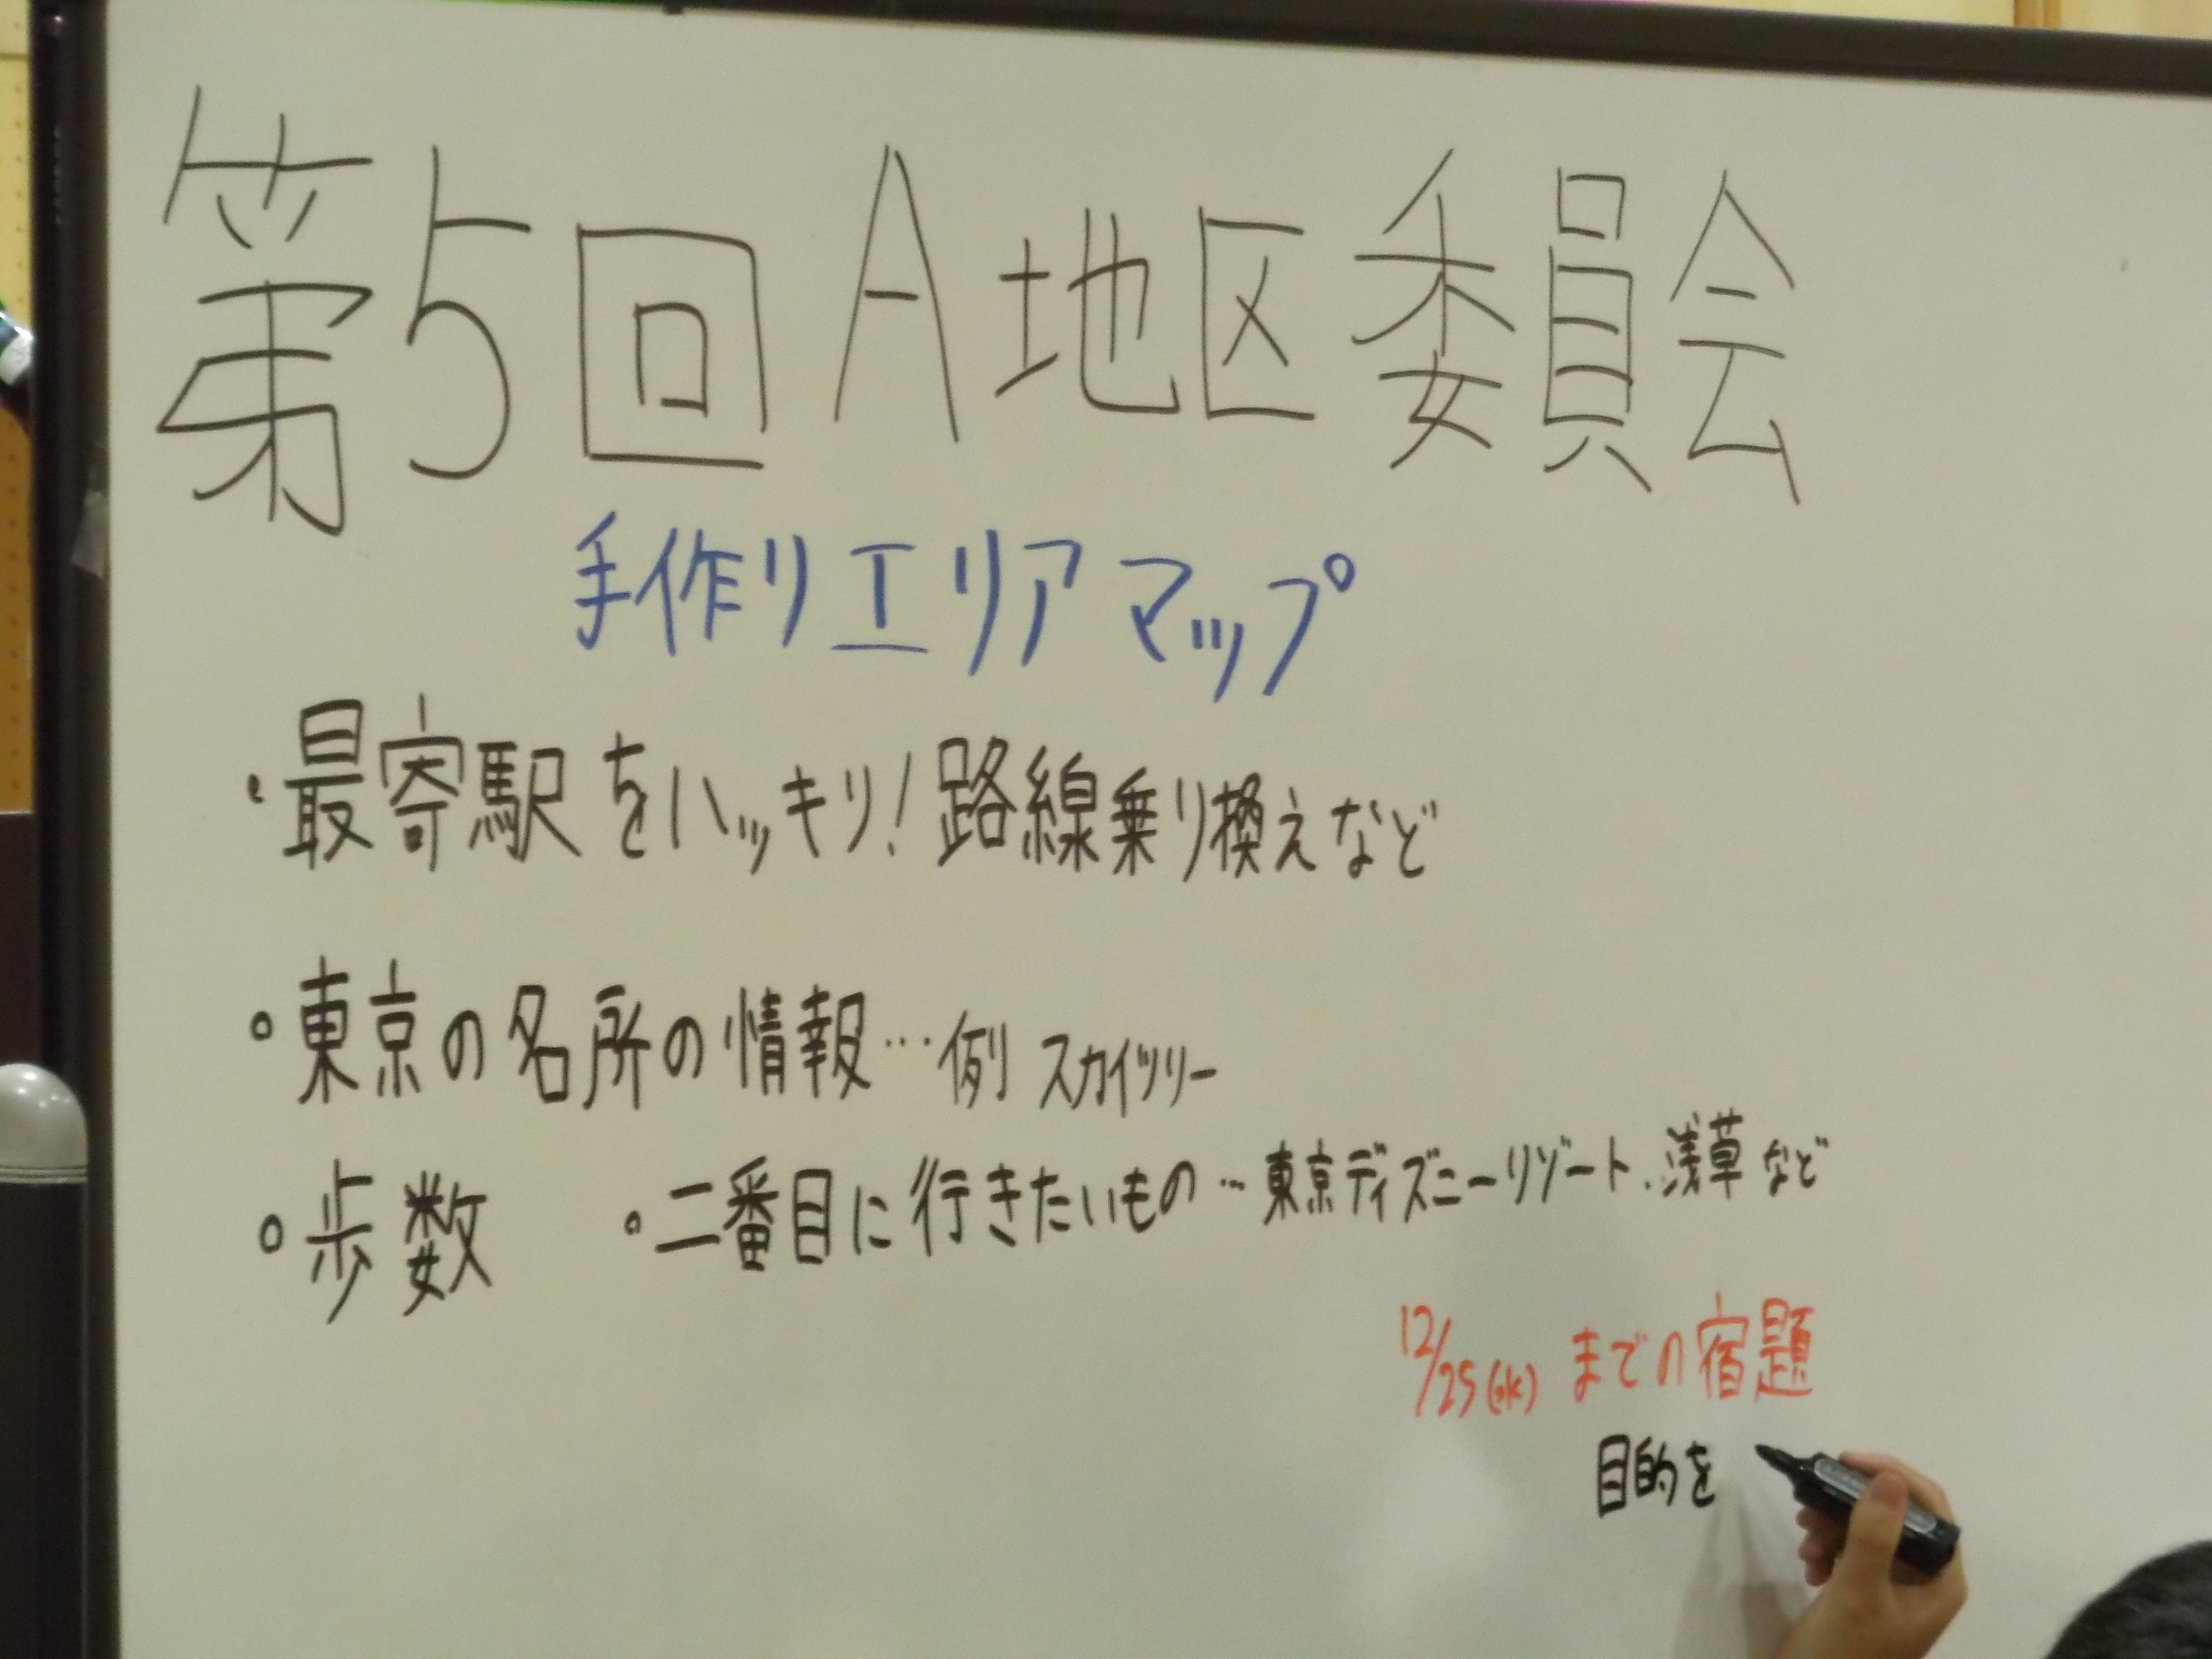 第5回A地区委員会
手作りエリアマップ
・最寄駅をハッキリ!路線乗り換えなど
○東京の名所の情報…例 スカイツリー
○歩数 ○二番目に行きたいもの…東京ディズニーリゾート、浅草など
12/25(水)までの宿題
目的を